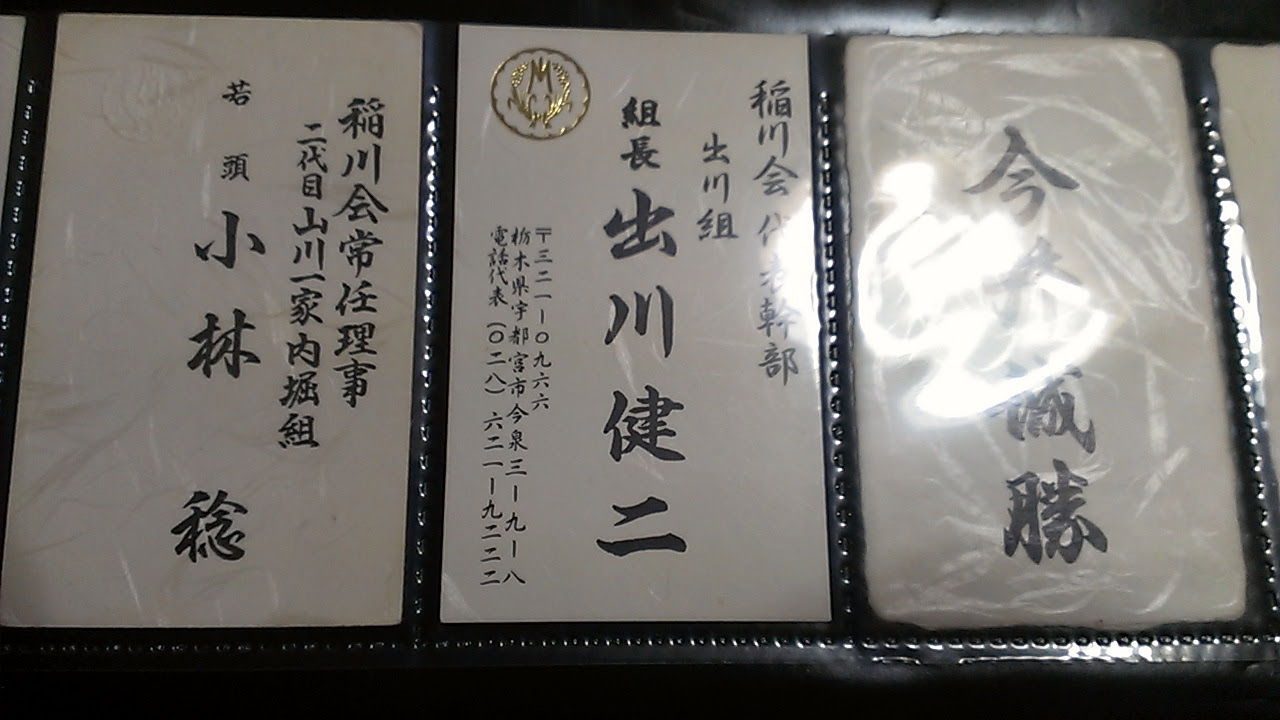 稲川会常任理事
二代目山川一家内堀組
若頭 小林 稔
稲川会 代表幹部
出川組
組長 出川健二
〒三二一ー〇九六六
栃木県宇都宮市今泉三ー九ー八
電話代表(〇二八)六二一ー九二二二
M
今 誠勝